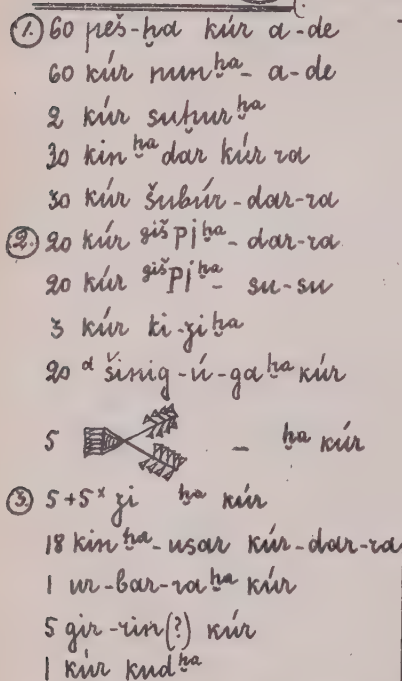 ① 60 peš-ḫa kúr a-de
60 kúr nun^ḫa- a-de
2 kúr suḫur^ḫa
30 kin^ḫa dar kúr ra
30 kúr šubúr-dar-ra
② 20 kúr ^giš PI^ḫa- dar-ra
20 kúr ^giš PI^ḫa- su-su
3 kúr ki-zi^ḫa
20 ^d šinig-ú-ga^ḫa kúr
5 - ḫa kúr
③ 5+5^x zi ^ḫa kúr
18 kin^ḫa-usar kúr-dar-ra
1 ur-bar-ra^ḫa kúr
5 gir-rin(?) kúr
1 kúr kud^ḫa